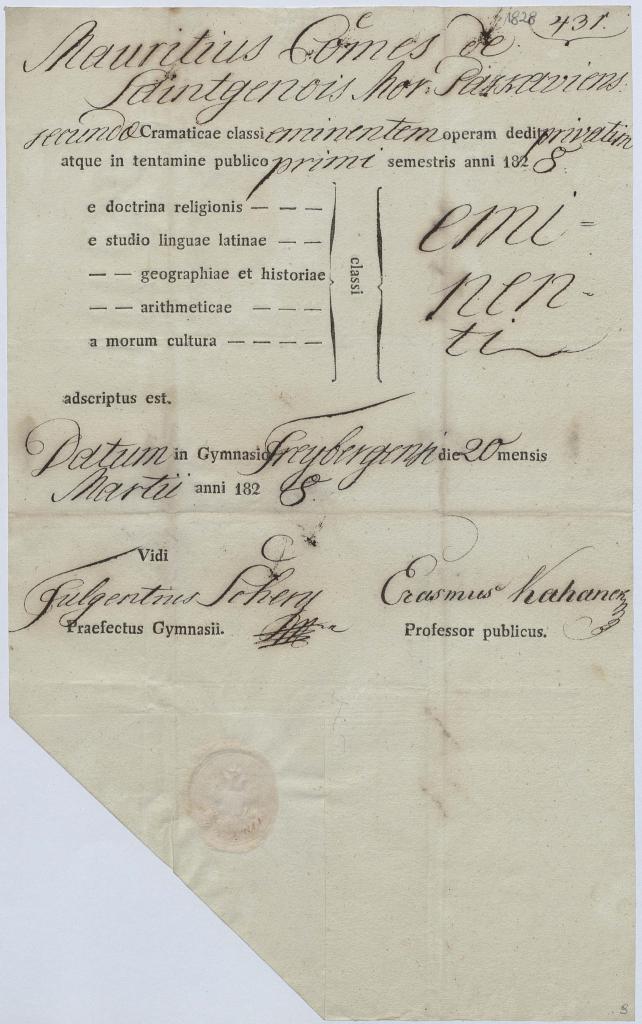 1828 431.
Mauritius Comes de
Saintgenois Mor. Paskaviens.
secundae Gramaticae classi eminentem operam dedit privatim
atque in tentamine publico primi semestris anni 1828
e doctrina religionis — — —
e studio linguae latinae — —
— — geographiae et historiae
— — arithmeticae — — —
a morum cultura — — — —
classi
emi-
nen-
ti
adscriptus est.
Datum in Gymnasio Freybergensi die 20 mensis
Martii anni 1828
Vidi
Fulgentius Schery
Erasmus Kahanek
Praefectus Gymnasii.
Professor publicus.